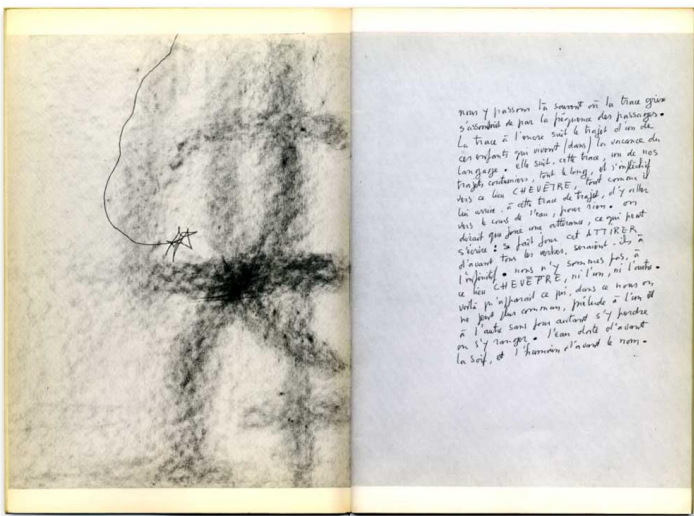 nous y passons là souvent où la trace grise
s'assombrit de par la fréquence des passages.
La trace à l'encre suit le trajet d'un de
ces enfants qui vivent (dans) la vacance du
langage. elle suit, cette trace, un de nos
trajets coutumiers, tout le long, et s'infléchit
vers ce lieu CHEVÊTRE, tout comme il
lui arrive, à cette trace de trajet, d'y aller
vers le cours de l'eau, pour rien. on
dirait que joue une attirance, ce qui peut
s'écrire : se fait jour cet ATTIRER
d'avant tous les verbes, seraient-ils à
l'infinitif. nous n'y sommes pas, à
ce lieu CHEVÊTRE, ni l'un, ni l'autre.
voilà qu'apparaît ce qui, dans ce nous on,
ne peut plus commun, prélude à l'un et
à l'autre sans pour autant s'y perdre
ou s'y ranger. l'eau date d'avant
la soif, et l'humain d'avant le nom.